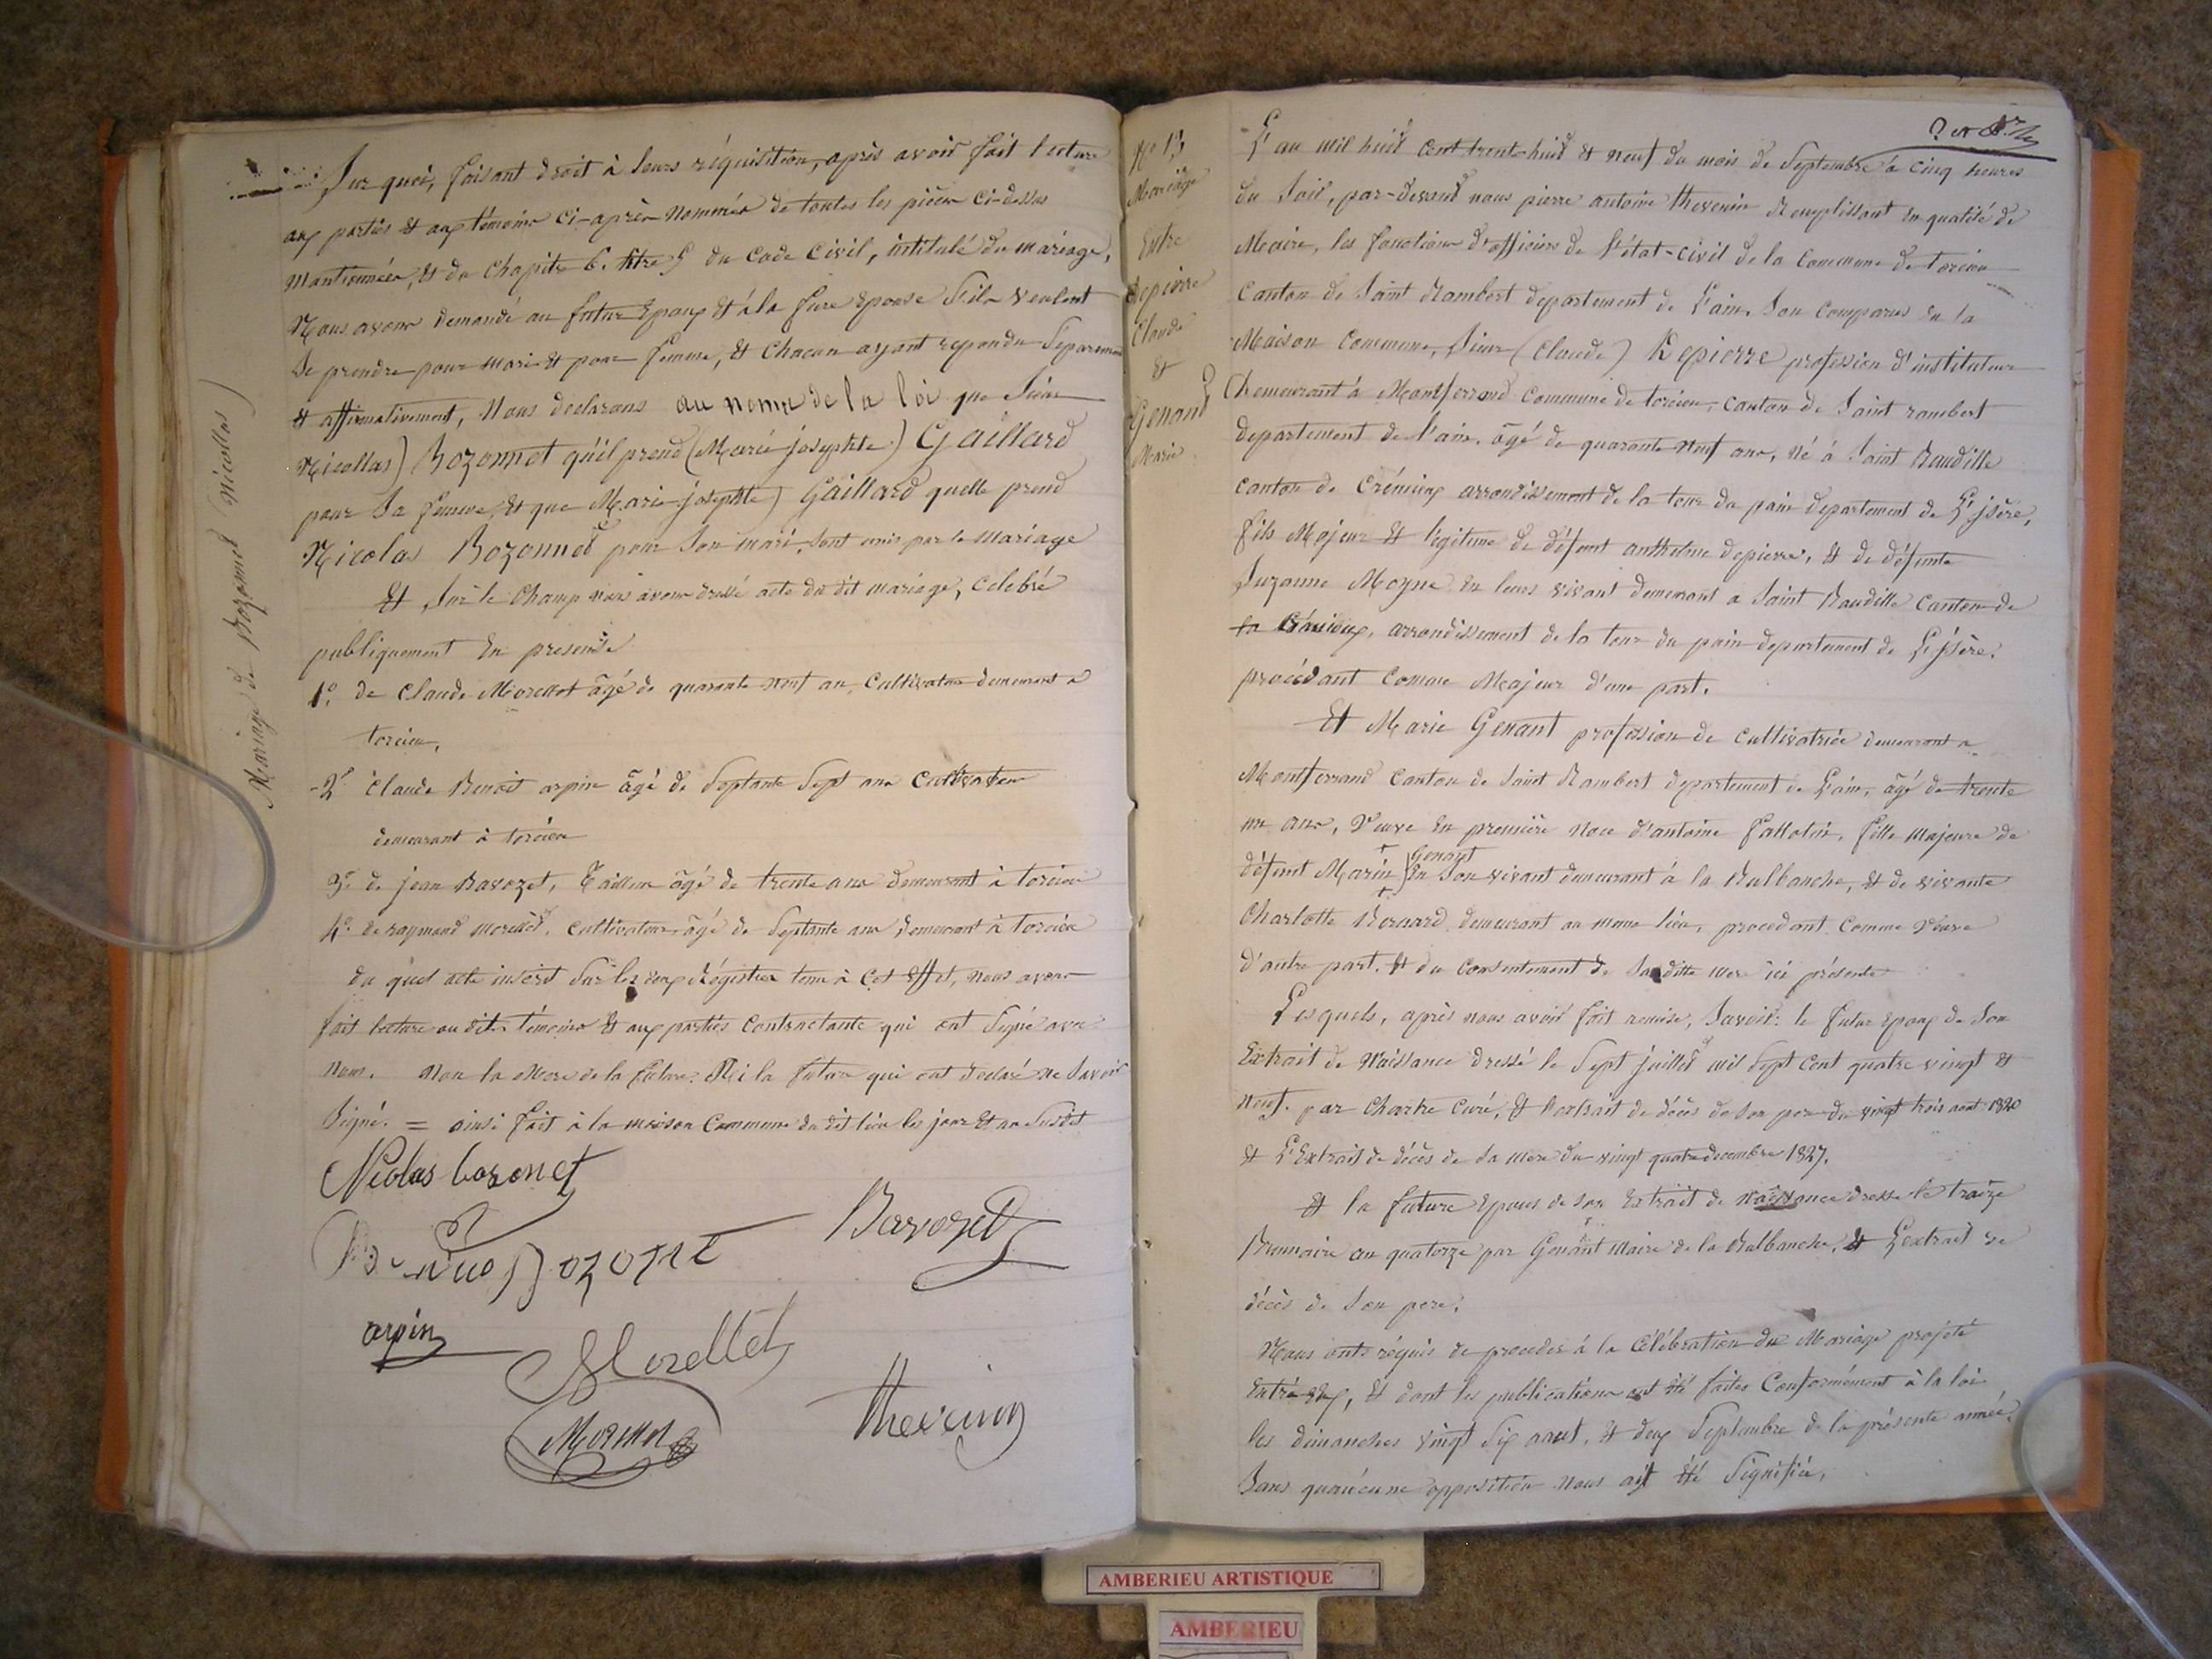 Sur quoi, faisant droit à leurs réquisition, après avoir fait lecture
aux parties & aux témoins ci-après nommés de toutes les pièces ci-dessus
mantionnées, & du chapitre 6. titre 5 du Code Civil, intitulé du mariage,
Nous avons demandé au futur Epoux & à la future Epouse S'ils veulent
Se prendre pour mari & pour femme, & chacun ayant repondu Separement
& affirmativement, Nous declarons au nom de la loi que Sieur
Nicollas) Bozonnet qu'il prend (Marie josephte) Gaillard
pour Sa femme, & que Marie josephte) Gaillard quelle prend
Nicolas Bozonnet pour Son mari, Sont unis par le mariage
Et Sur le Champ nous avons dressé acte du dit mariage, Celebré
publiquement En presence
1º. de Claude Morellet âgé de quarante neuf an, Cultivateur demeurant a
torcieu,
2º Claude Benoit arpin âgé de Septante Sept ans Cultivateur
demeurant à torcieu
3º de jean Bavozet, Tailleur âgé de trente ans demeurant à torcieu
4º de raymond morellet, Cultivateur âgé de Septante ans demeurant à torcieu
du quel acte inséré Sur les deux Régistres tenu à Cet Effet, nous avons
fait lecture au dits témoins & aux parties Contractante qui ont Signé avec
Nous. Non la Mere de la future. Ni la future qui ont declaré ne Savoir
Signé. = ainsi fait à la maison Commune du dit lieu les jour & an Susdit
Nicolas bozonet
Bozone
Bavozet
arpin
Morellet
Morellet
thevenin
Mariage de Bozonnet (Nicollas)
No 13
Mariage
Entre
Depierre
Claude
&
Genant
Marie
L'an mil huit Cent trente-huit & neuf du mois de Septembre à cinq heures
du Soir, par-devant nous pierre antoine thevenin Remplissant En qualité de
Maire, les fonctions d'officier de l'état-civil de la Commune de torcieu
Canton de Saint Rambert departement de L'ain. Son Comparus En la
Maison Commune, Sieur (Claude) Depierre profession d'instituteur
Demeurant à Montferrand Commune de torcieu, canton de Saint rambert
departement de l'ain. âgé de quarante neuf ans, né à Saint Baudille
canton de Crémieux arrondissement de la tour du pain departement de L'jsère,
fils Majeur & légitime de défunt anthelme depierre, & de défunte
Suzanne Moyne En leurs vivant demeurant a Saint Baudille Canton de
la Crémieux, arrondissement de la tour du pain departement de L'jsère.
procédant Comme Majeur d'une part.
Et Marie Genant profession de Cultivatrice demeurant a
Montferrand Canton de Saint Rambert departement de L'ain, âgé de trente
un ans, Veuve En première Noce d'antoine Fallotin, fille majeure de
Genant
défunt Marin En Son vivant demeurant à la Balbanche, & de vivante
Charlotte Bernard demeurant au meme lieu, procedant Comme Veuve
d'autre part. & du Consentement de Sa ditte mere ici présente
Lesquels, après nous avoir fait remise, Savoir: le futur Epoux de Son
Extrait de Naissance dressé le Sept juillet mil Sept Cent quatre vingt &
neuf. par Chartre Curé, & l'extrait de décès de Son pere du vingt trois aout 1820
& L'Extrait de décès de Sa mere du vingt quatre decembre 1827.
& la future Epouse de Son Extrait de naissance dressé le traize
Brumaire an quatorze par Genant Maire de la Balbanche, & L'extrait de
décès de Son pere.
Nous ont réquis de proceder à la Célébration du Mariage projeté
Entre Eux, & dont les publications ont été faites Conformément à la loi
les dimanches vingt Six aout, & deux Septembre de la présente année,
Sans quaucune opposition nous ait été Signifiée,
AMBERIEU ARTISTIQUE
AMBERIEU